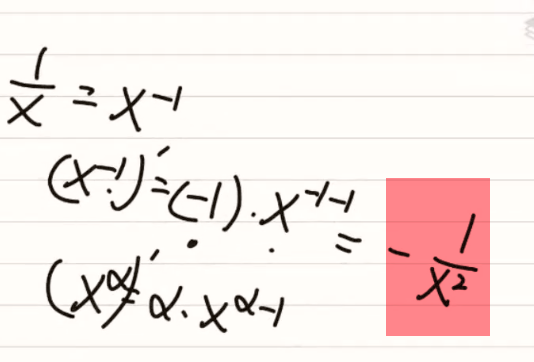 1/x = x⁻¹
(x⁻¹)′ = (-1) · x⁻¹⁻¹ = - 1/x²
(x^α)′ = α · x^(α-1)